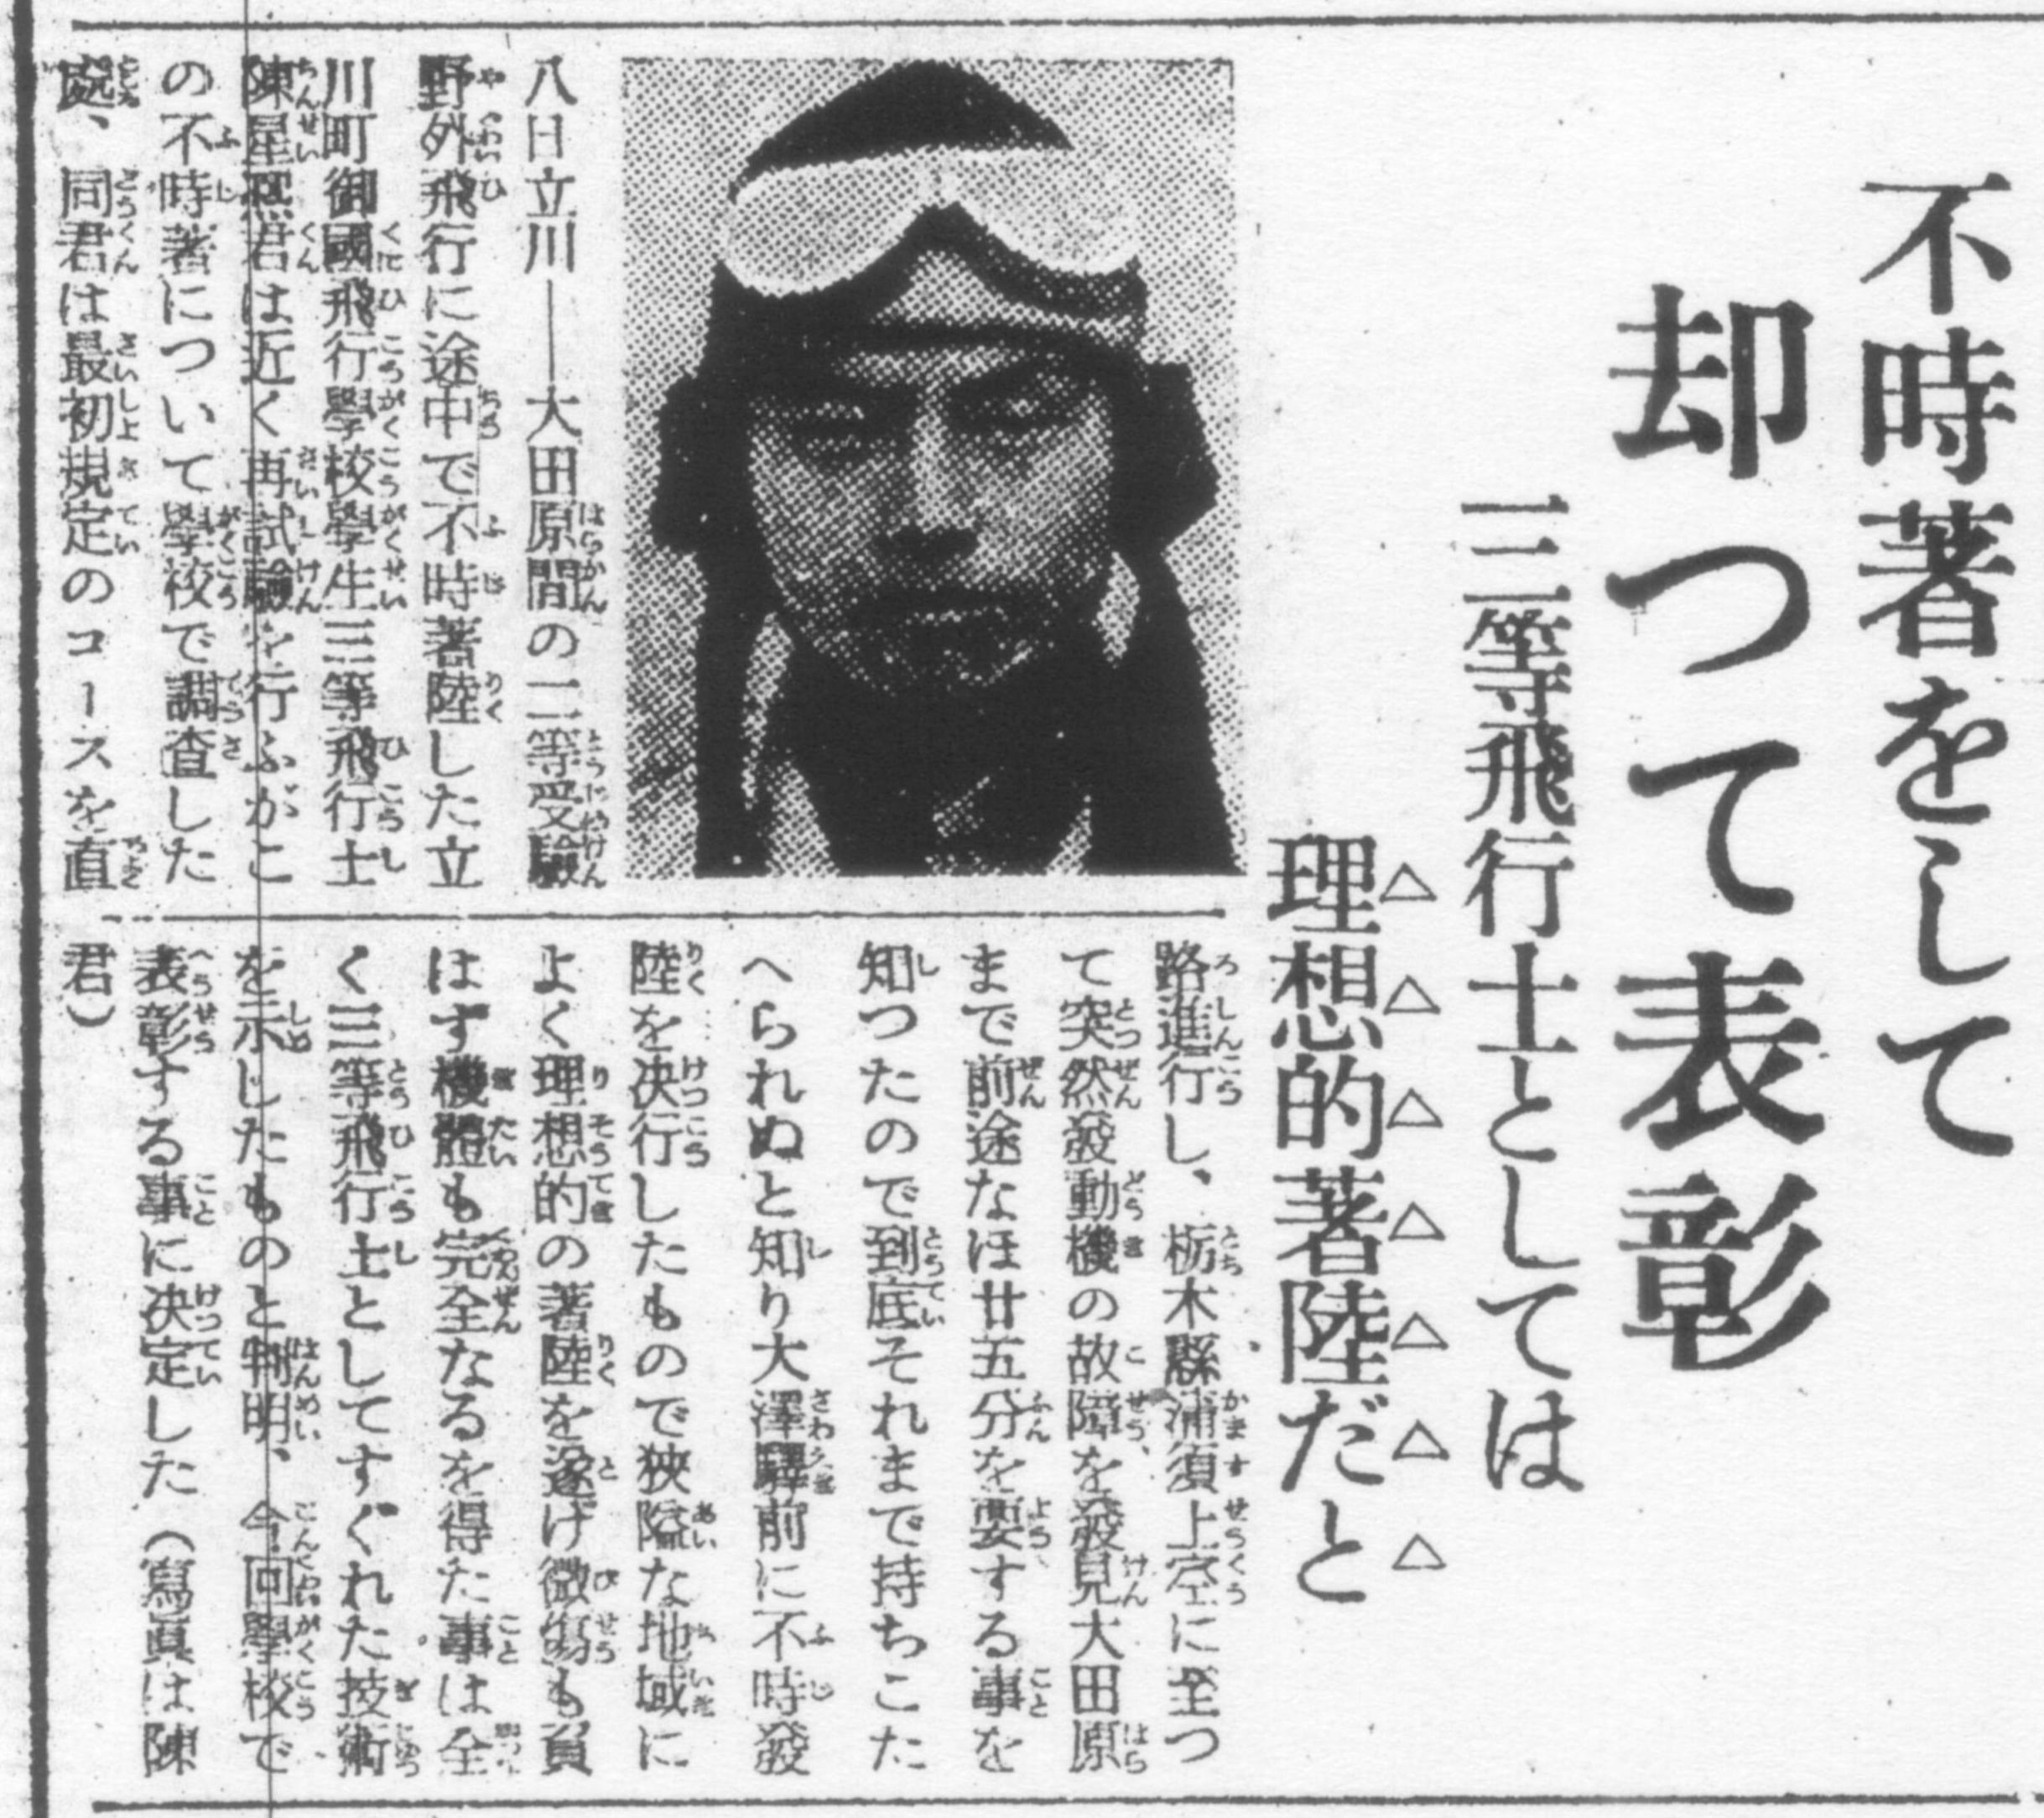 不時著をして
却つて表彰
三等飛行士としては
理想的著陸だと
八日立川―大田原間の二等受驗
野外飛行に途中で不時著陸した立
川町御國飛行學校學生三等飛行士
陳星熙君は近く再試驗を行ふがこ
の不時著について學校で調査した
處、同君は最初規定のコースを直
路進行し、栃木縣蒲須上空に至つ
て突然發動機の故障を發見大田原
まで前途なほ廿五分を要する事を
知つたので到底それまで持ちこた
へられぬと知り大澤驛前に不時發
陸を決行したもので狹隘な地域に
よく理想的の著陸を遂げ微傷も負
はず機體も完全なるを得た事は全
く三等飛行士としてすぐれた技術
を示したものと判明、今回學校で
表彰する事に決定した（寫眞は陳
君）